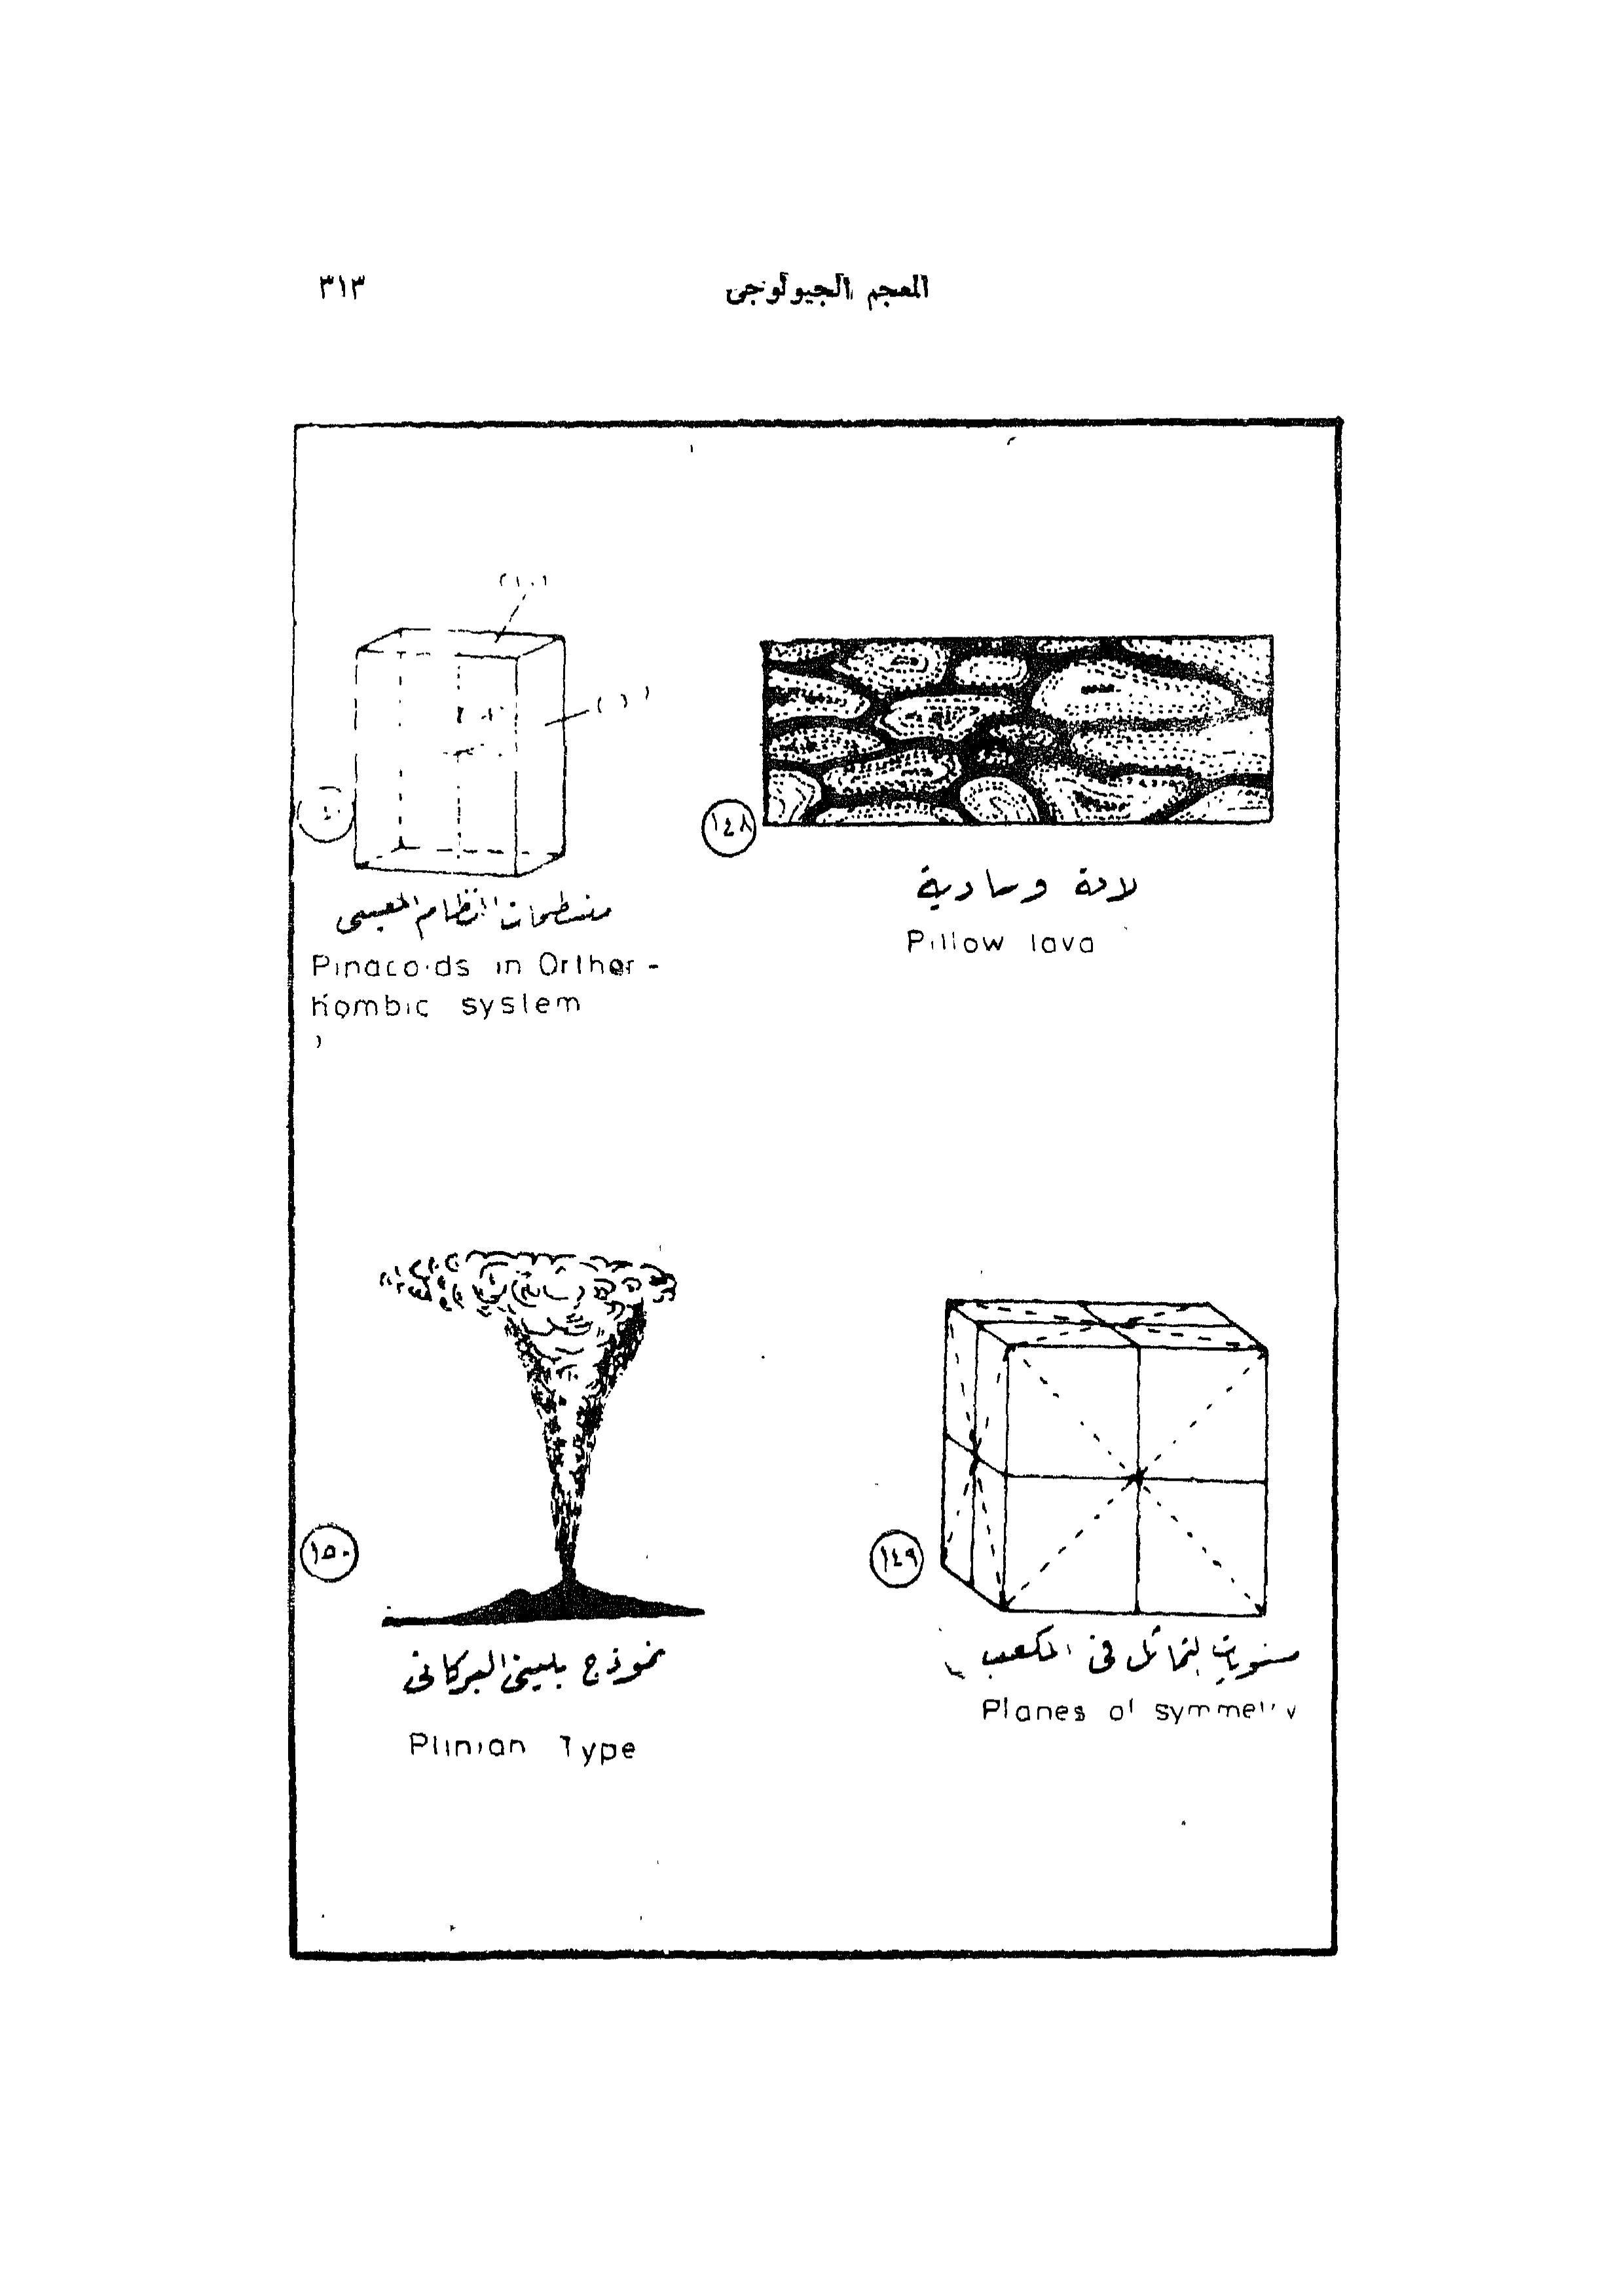 المعجم الجيولوجى
٣١٣
١٤٨
لابة وسادية
Pillow lava
النظام المعينى
Pinacoids in Orthor-
hombic system
١٤٩
مستويات التماثل فى المكعب
Planes of symmetry
١٥٠
نموذج بلينى البركانى
Plinian Type